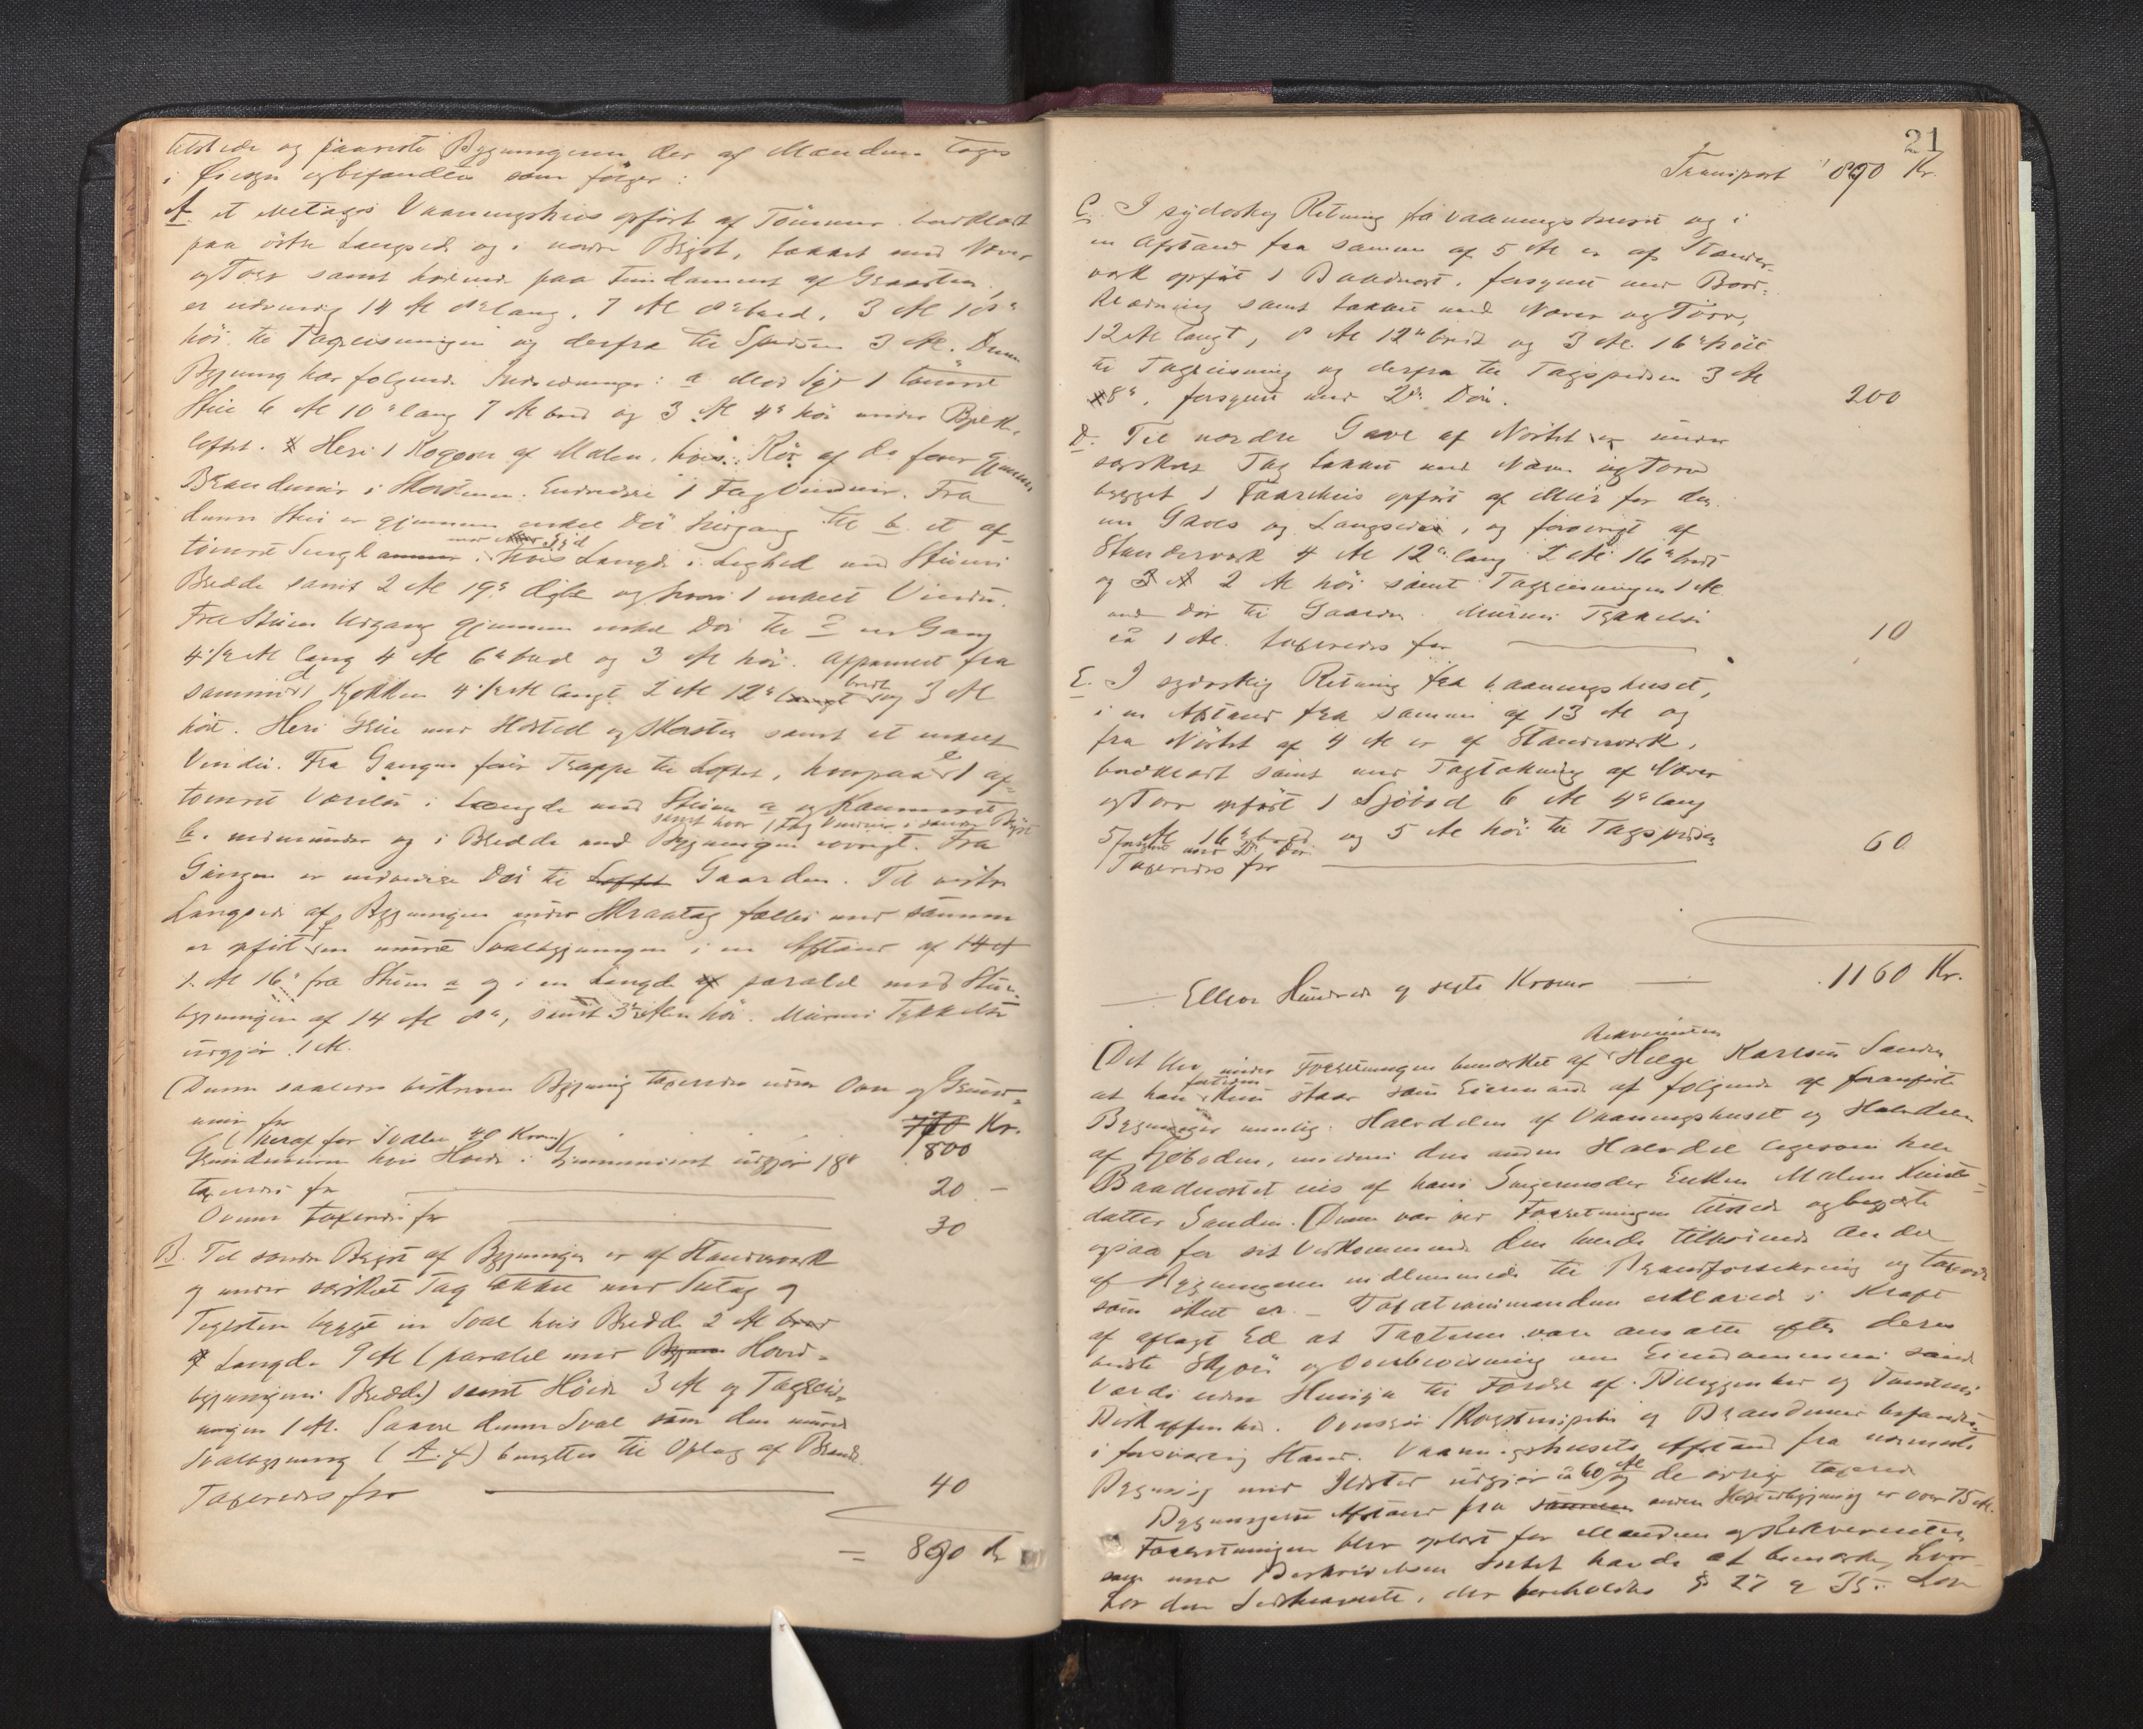 tilstede og paaviste Bygningerne der af Mændene toges
i Øiesyn og befandtes som følger:
A. et 1 Etages Vaaningshus opført af Tömmer bordklædt
paa östre Langside og i nordre Bryst, tækket med Næver
og Torv samt hvilende paa Fundament af Graasten,
er udvendig 14 Al 8" lang, 7 Al 8" bred, 3 Al 18"
höi til Tagreisningen og derfra til Spidsen 3 Al. Denne
Bygning har følgende Indredninger: a Mod Syd 1 tömret
Stue 6 Al 10" lang 7 Al bred og 3 Al 4" höi under Bjelke
loftet. Heri 1 Kogeovn af Malm, hvis Rör af do fører gjennem
Brandmur i Skorsten. Endvidere 1 Fag Vinduer. Fra
denne Stue er gjennem enkel Dör Udgang til b. et af
mod Syd
tömret Sengkammer. hvis Længde i Lighed med Stuens
Bredde samt 2 Al 19" dybt og hvori 1 enkelt Vindu.
Fra Stuen Udgang gjennem enkel Dör til c en Gang
4 1/2 Al lang 4 Al 6" bred og 3 Al höi. Afpanelet fra
bredt
samme d 1 Kjøkken 4 1/2 Al langt 2 Al 12" langt og 3 Al
höit. Heri Grue med Ildsted og Skorsten samt et enkelt
Vindu. Fra Gangen fører Trappe til Loftet, hvorpaa e 1 af-
tømret Værelse i Længde med Stuen a og Kammeret
samt hvor 1 Fag Vinduer i søndre Bryst
b. nedenunder og i Bredde med Bygningen iøvrigt. Fra
Gangen er udvendig Dör til Loftet Gaarden. Til vestre
Langside af Bygningen under Skraatag fælles med samme
er opført f en muret Svalbygning i en Afstand af 14 Al
1 Al 16" fra Stuen a og i en Længde af paralel med Stue-
bygningen af 14 Al 8", samt 3 Alen höi. Murens Tykkelse
udgjør 1 Al.
(Denne saaledes beskrevne Bygning taxeredes uden Ovn og Grund-
mur for 770 Kr.
(heraf for Svalen 40 Kroner) 800
Grundmuren hvis Høide i Gjennemsnit udgjør 18"
taxeredes for 20 -
Ovnen taxeredes for 30
B. Til søndre Bryst af Bygningen er af Standværk
og under særskilt Tag tækket med Sutag og
Teglsten bygget en Sval hvis Bredde 2 Al bred
Længde 9 Al (paralel med Bygnin Hoved-
bygningens Bredde) samt Høide 3 Al og Tagreis-
ningen 1 Al. Saavel denne Sval som den murede
Svalbygning (A. f) benyttes til Oplag af Brænde.
Taxeredes for 40
= 890 Kr
21
Transport 890 Kr.
C. I sydostlig Retning fra Vaaningshuset og i
en Afstand fra samme af 5 Al er af Stander-
værk opført 1 Baadnöst, forsynet med Bord-
klædning samt tækket med Næver og Törv,
12 Al langt, 8 Al 12" bredt og 3 Al. 16" höit
til Tagreisning og derfra til Tagspidsen 3 Al
8", forsynet med 2de Döre. 200
D. Til nordre Gavl af Nöstet er under
særskilt Tag tækket med Næver og Torv
bygget 1 Faarehus opført af Mur for den
ene Gavls og Langside, og forøvrigt af
Standerværk 4 Al 12" lang 2 Al 16" bredt
og 3 Al 2 Al höi samt Tagreisningen 1 Al.
med Dör til Gaarden. Murens Tykkelse
ca 1 Al. taxeredes for 10
E. I sydostlig Retning fra Vaaningshuset,
i en Afstand fra samme af 13 Al og
fra Nöstet af 4 Al er af Standerværk,
bordklædt samt med Tagtækning af Næver
og Torv opført 1 Sjöbod 6 Al 4" lang
5 Al 16" bred og 5 Al höi til Tagspidsen
forsynet med 2de Döre.
Taxeredes for 60
Elleve Hundrede og sexti Kroner 1160 Kr.
Rekvirenten
(Det blev under Forretningen bemærket af Helge Karlsen Sanden
at han kun staar som Eiermand af følgende af foranførte
Bygninger nemlig: Halvdelen af Vaaningshuset og Halvdelen
af Sjöboden, medens den anden Halvdel ligesom hele
Baadnöstet eies af hans Svigermoder Enken Malene Knuds-
datter Sanden. (Denne var ved Forretningen tilstede og begjærte
ogsaa for sit Vedkommende den hende tilhørende Andel
af Bygningerne indlemmede til Brandforsikring og taxeret
som skeet er. - Taxationsmændene erklærede i Kraft
af aflagt Ed at Taxterne vare ansatte efter deres
bedste Skjøn og Overbevisning om Eiendommenes sande
Værdi uden Hensyn til Fordel af Beliggenhed og Tomtens
Beskaffenhed. Ovnsrör Skorstenspiber og Brandmure befandtes
i forsvarlig Stand. Vaaningshusets Afstand fra nærmeste
Bygning med Ildsted udgjør ca 60 Al og de øvrige taxerede
Bygningers Afstand fra sammen anden Ildstedbygning er over 75 Al.
Forretningen blev oplæst for Mændene og Rekvirenten
som mod Beskrivelsen Intet havde at bemærke, hvor-
hos den Sidstnævnte, der foreholdtes § 27 og 35 i Lov